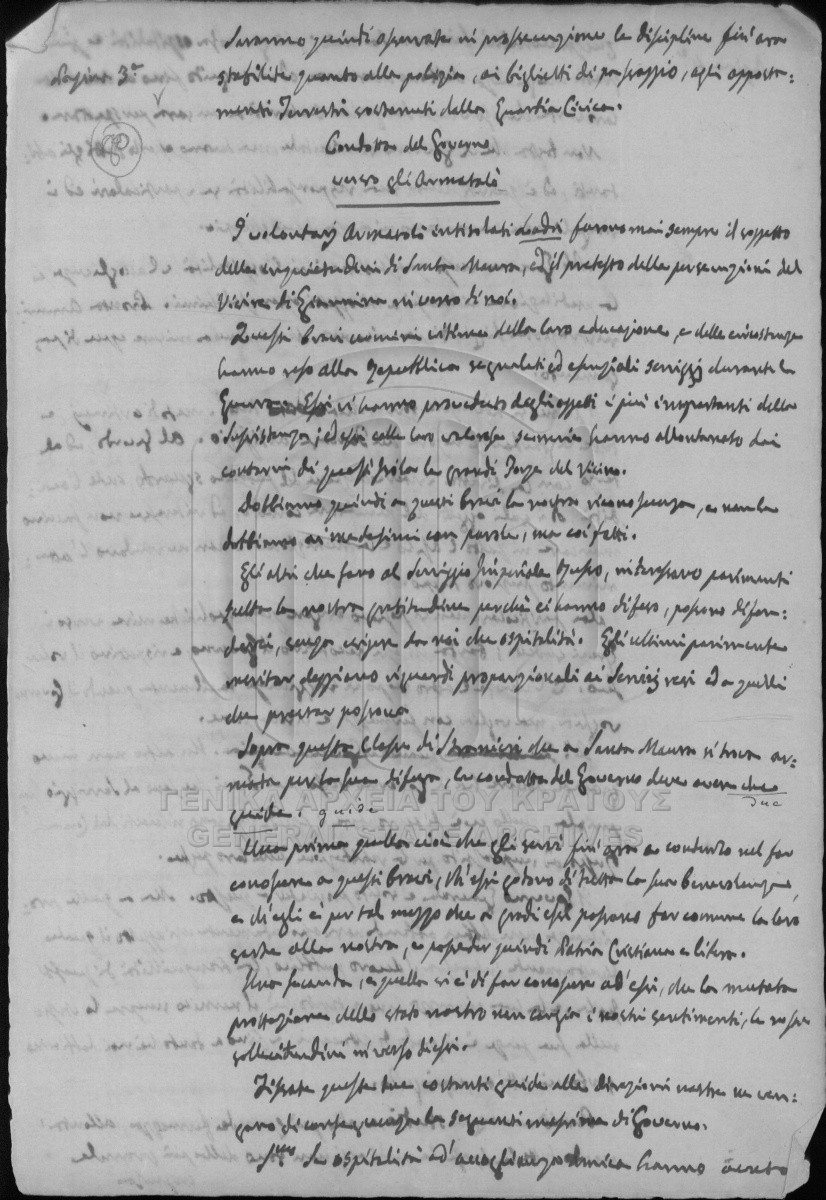 Saranno quindi osservate in prosecuzione le discipline fin' ora
Pagina 3ª
stabilite quanto alla polizia, ai biglietti di passaggio, agli apposta-
menti Terrestri sostenuti dalla Guardia Civica.
80
Condotta del Governo
verso gli Armatolò
I volontarj Armatoli intitolati Ladri furono mai sempre il soggetto
delle inquietudini di Santa Maura, ed il pretesto delle persecuzioni del
Visire di Giannina in verso di noi.
Questi bravi uomini vittime della loro educazione, e delle circostanze
hanno reso alla Repubblica segnalati ed essenziali servizj durante la
Guerra. Essi ci hanno proveduto degli oggetti i più importanti della
sussistenza; ed essi colle loro valorose hanno allontanato dai
contorni di quest' Isola le grandi forze del Vicino.
Dobbiamo quindi a questi bravi la nostra riconoscenza, e non la
dobbiamo ai medesimi con parole, ma coi fatti.
Gli altri che sono al Servizio Imperiale Russo, interessano parimenti
tutta la nostra gratitudine perchè ci hanno difeso, possono difen-
derci, senza esigere da noi che ospitalità. Gli ultimi parimente
meritan, deggiono riguardi proporzionali ai Servizj resi ed a quelli
che prestar possono
Sopra questa Classe di Stranieri che a Santa Maura si trova ar-
mata per la sua difesa, la condotta del Governo deve avere due
due
guide. guide
Una prima quella cioè che gli servì fin' ora a condurlo nel far
conoscere a questi bravi, ch' essi godono di tutta la sua benevolenza,
e ch' egli è per tal mezzo che a gradi essi possono far comune la loro
sorte alla nostra, e posseder quindi Patria Cristiana e libera.
Una seconda, e quella si è di far conoscere ad essi, che la mutata
protezione dello stato nostro non cangia i nostri sentimenti, le nostre
sollecitudini in verso di essi.
Fissate queste due costanti guide alle direzioni nostre ne ven-
gono di conseguenza le seguenti massime di Governo.
Se ospitalità ed accoglienze amica hanno avuto